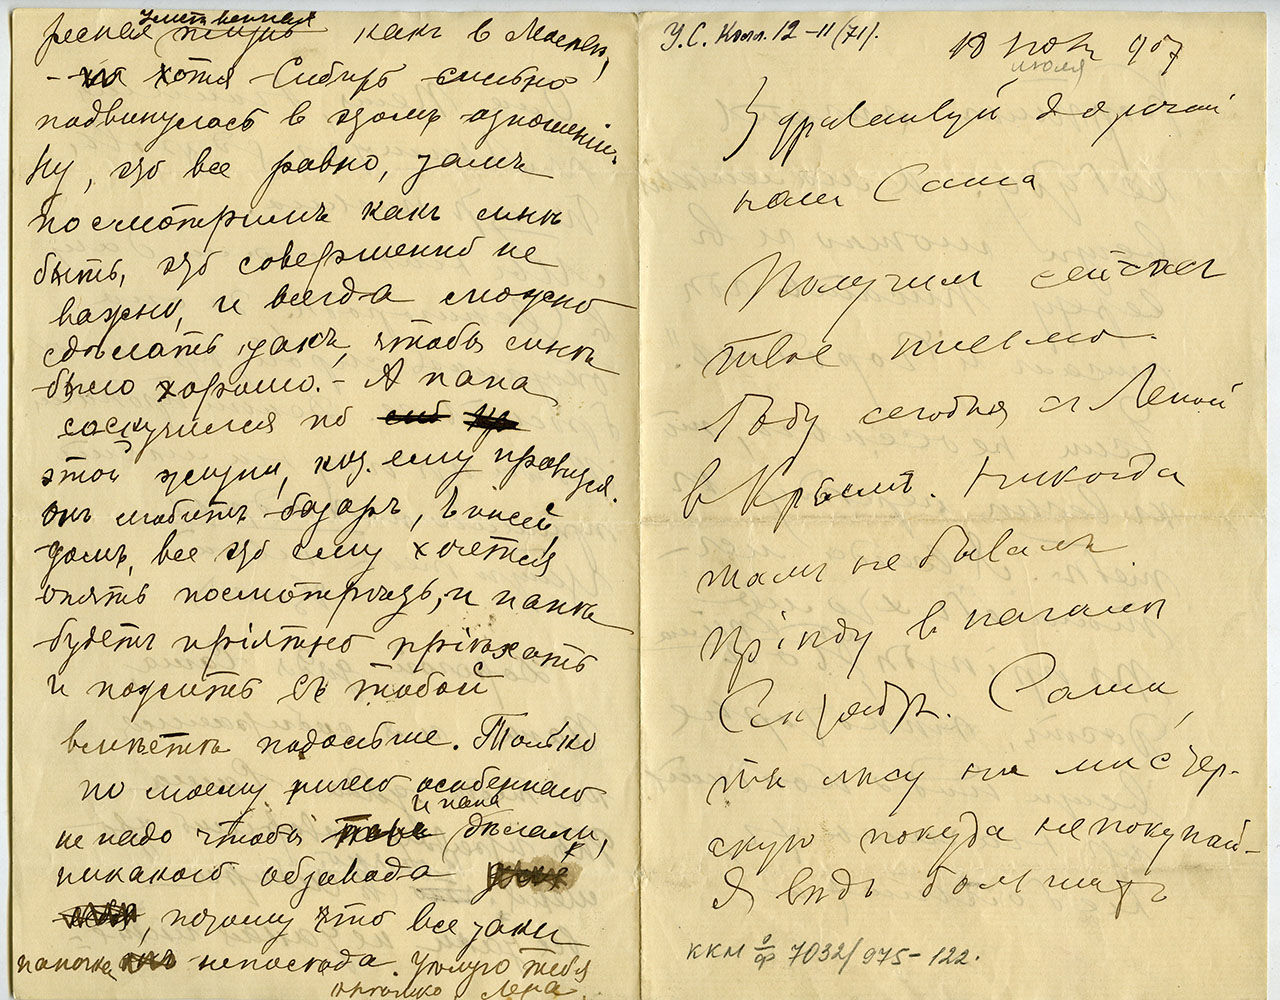 ресная умственная жизнь какъ в Москвѣ,
- но хотя Сибирь сильно
подвинулась в этомъ отношеніи.
Ну, это все равно, тамъ
посмотримъ какъ мнѣ
быть, это совершенно не
важно, и всегда можно
сдѣлать такъ, чтобы мнѣ
было хорошо. - А папа
соскучился по
этой жизни, коя ему нравится.
Онъ любитъ базаръ,
домъ, все это ему хочется
опять посмотрѣть, и папѣ
будетъ пріятно пріѣхать
и пожить съ тобой
вмѣстѣ подольше. Только
по моему ничего особеннаго
не надо чтобы и папа дѣлали,
никакого обзавода
, потому что все таки
папочка непоседа. Цѣлую тебя
крѣпко Лена.
У.С. Колл. 12-11 (71).
18 июля 907
июля
Здравствуй дорогой
нашъ Саша
Получил сейчас
твое письмо.
Еду сегодня с Леной
в Крымъ. Никогда
тамъ не бывалъ
Пріѣду в началѣ
Сентября. Саша,
ты лису на мастер-
скую покуда не покупай-
Я ведь
ККМ о/ф 7032/975-122.